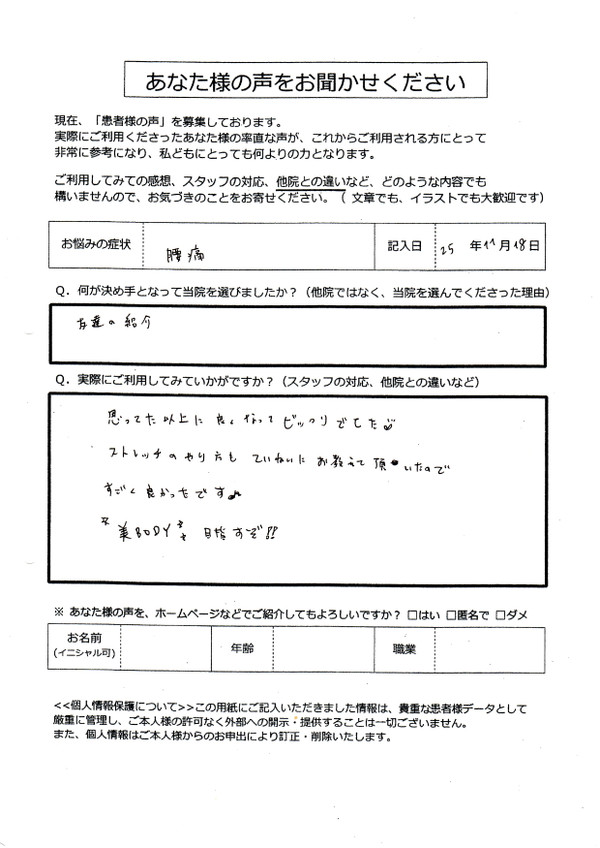 あなた様の声をお聞かせください
現在、「患者様の声」を募集しております。
実際にご利用くださったあなた様の率直な声が、これからご利用される方にとって
非常に参考になり、私どもにとっても何よりの力となります。
ご利用してみての感想、スタッフの対応、他院との違いなど、どのような内容でも
構いませんので、お気づきのことをお寄せください。（ 文章でも、イラストでも大歓迎です）
お悩みの症状 腰痛 記入日 25 年11月18日
Q．何が決め手となって当院を選びましたか？（他院ではなく、当院を選んでくださった理由）
友達の紹介
Q．実際にご利用してみていかがですか？（スタッフの対応、他院との違いなど）
思ってた以上に良くなってビックリでした
ストレッチのやり方も ていねいに お教えて頂いたので
すごく良かったです♪
美BODY 目指すぞ!!
※ あなた様の声を、ホームページなどでご紹介してもよろしいですか？ □はい □匿名で □ダメ
お名前
(イニシャル可)
年齢
職業
<<個人情報保護について>>この用紙にご記入いただきました情報は、貴重な患者様データとして
厳重に管理し、ご本人様の許可なく外部への開示・提供することは一切ございません。
また、個人情報はご本人様からのお申出により訂正・削除いたします。